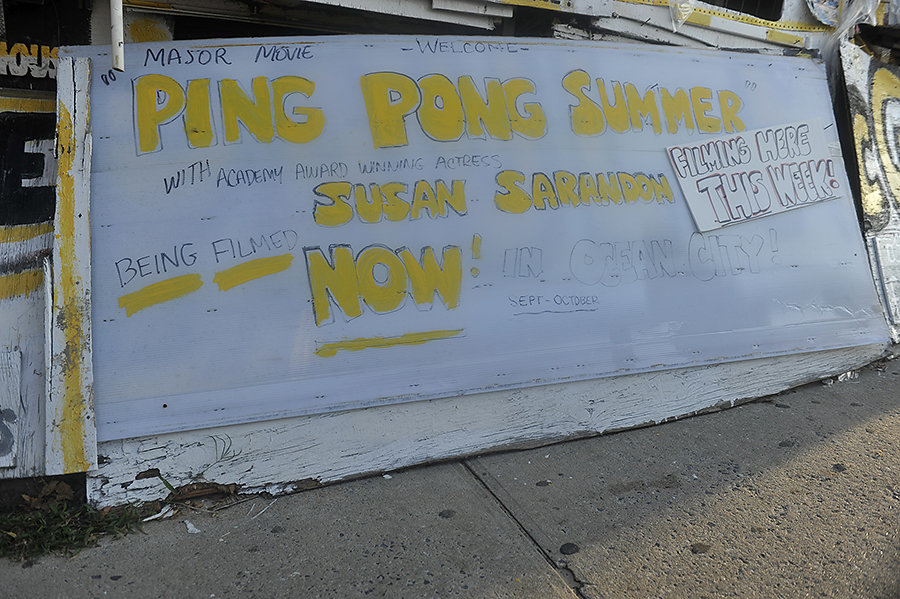 HOUS
E
-WELCOME-
MAJOR MOVIE
"PING PONG SUMMER"
WITH ACADEMY AWARD WINNING ACTRESS
SUSAN SARANDON
FILMING HERE
THIS WEEK!
BEING FILMED
NOW! IN OCEAN CITY!
SEPT-OCTOBER